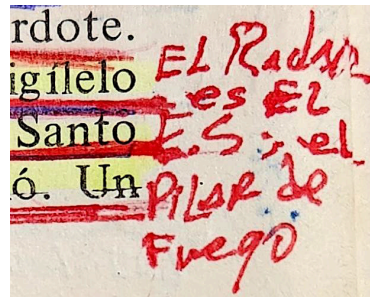 rdote.
igílelo
Santo
ó. Un
EL Radar
es El
E.S ; el
PILAR de
Fuego